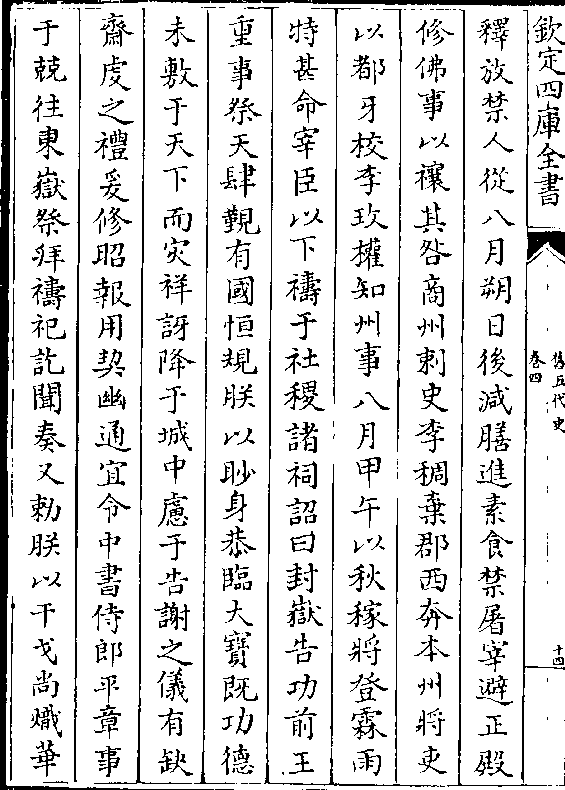 欽定四庫全書
舊五代史
卷四
十四
釋放禁人從八月朔日後減膳進素食禁屠宰避正殿
修佛事以禳其咎商州刺史李稠棄郡西奔本州將吏
以都牙校李玫權知州事八月甲午以秋稼將登霖雨
特甚命宰臣以下禱于社稷諸祠詔曰封嶽告功前王
重事祭天肆覲有國恒規朕以眇身恭臨大寶既功德
未敷于天下而灾祥訝降于城中慮于告謝之儀有缺
齋虔之禮爰修昭報用契幽通宜令中書侍郎平章事
于兢往東嶽祭拜禱祀訖聞奏又勅朕以干戈尚熾華